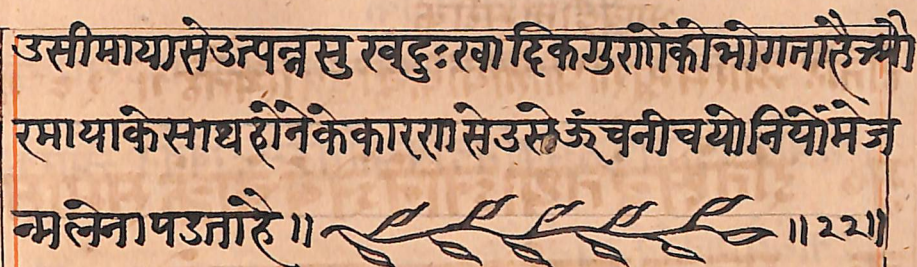 उसीमायासेउत्पन्नसुखदुःखादिकगुणोंकोभोगताहैऔ
रमायाकेसाथहोनेकेकारणसेउसेऊंचनीचयोनियोंमेज
न्मलेनापडताहै॥ ॥२२॥